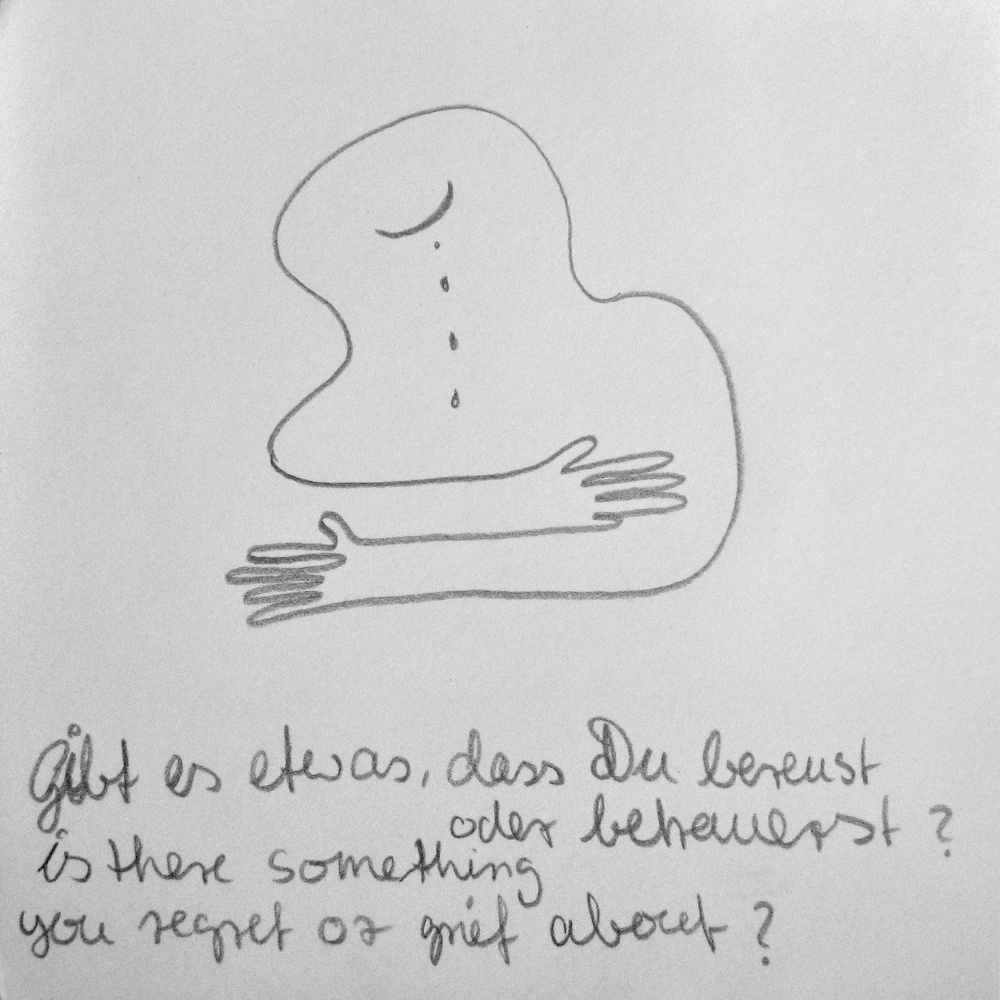 Gibt es etwas, dass Du bereust
oder betrauerst ?
is there something
you regret or grief about ?